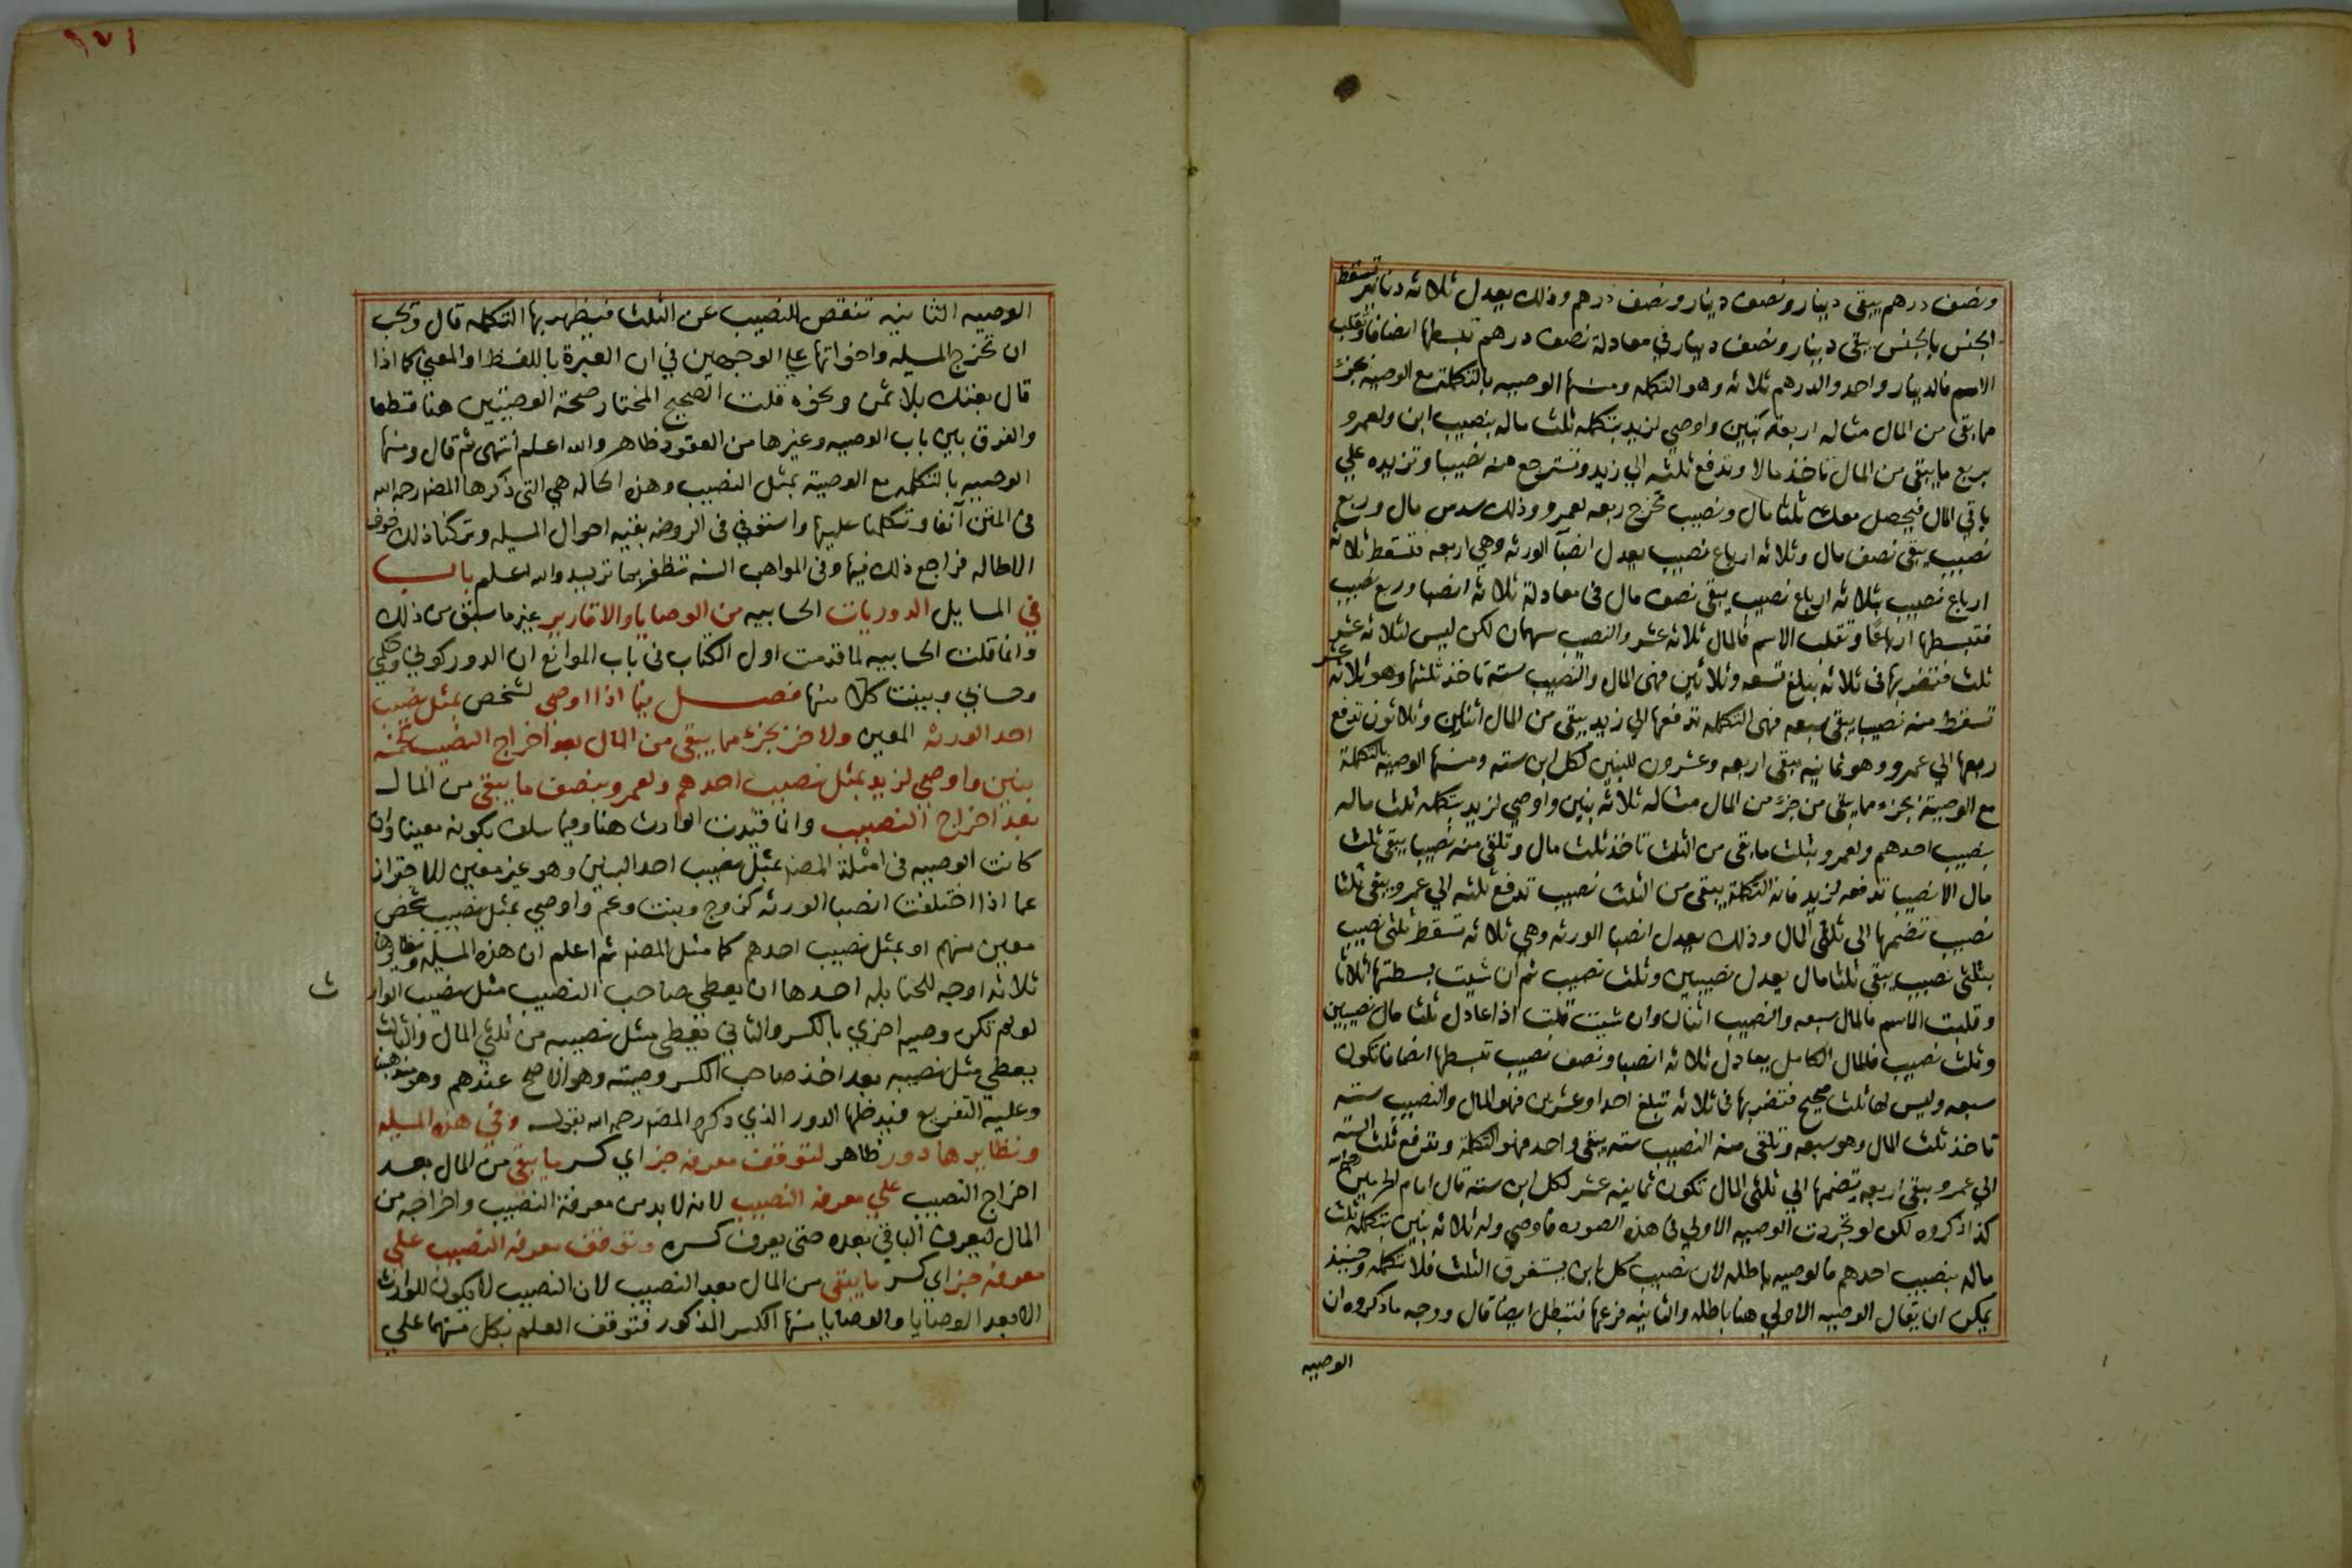 ونصف درهم يبقى دينار ونصف دينار ونصف درهم وذلك يعدل ثلاثه دنانير تسقط
الجنس بالجنس يبقى دينار ونصف دينار في معادلة نصف درهم تبسطها انصافا وتقلب
الاسم فالدينار واحد والدرهم ثلاثه وهو التكمله ومنها الوصيه بالتكملة مع الوصيه بجزء
مما بقى من المال مثاله اربعة بنين واوصي لزيد بتكمله ثلث ماله بنصيب ابن ولعمرو
بربع ما يبقى من المال تاخذ مالا وتدفع ثلثه الي زيد وتسترجع منه نصيبا وتزيده علي
باقي المال فيحصل معك ثلثا مال ونصيب تخرج ربعه لعمرو وذلك سدس مال وربع
نصيب يبقى نصف مال وثلاثه ارباع نصيب يعدل انصبآ الورثه وهي اربعه فتسقط ثلاثه
ارباع نصيب بثلاثه ارباع نصيب يبقى نصف مال في معادلة ثلاثه انصبا وربع نصيب
فتبسطها ارباعا وتقلب الاسم فالمال ثلاثه عشر والنصيب سهمان لكن ليس لثلاثه عشر
ثلث فتضربها في ثلاثه تبلغ تسعه وثلاثين فهى المال والنصيب سته تاخذ ثلثها وهو ثلاثه عشر
تسقط منه نصيبا يبقى سبعه فهى التكمله تدفعها الي زيد يبقى من المال اثنان وثلاثون تدفع
ربعها الي عمرو وهو ثمانيه يبقى اربعه وعشرون للبنين لكل ابن سته ومنها الوصيه بالتكملة
مع الوصية بجزء مما يبقى من جزء من المال مثاله ثلاثه بنين واوصي لزيد بتكمله ثلث ماله
بنصيب احدهم ولعمرو بثلث ما بقى من الثلث تاخذ ثلث مال وتلقى منه نصيبا يبقى ثلث
مال الا نصيبا تدفعه لزيد فانه التكملة يبقى من الثلث نصيب تدفع ثلثه الي عمرو يبقى ثلثا
نصيب تضمها الى ثلثى المال وذلك يعدل انصبا الورثه وهي ثلاثه تسقط ثلثي نصيب
بثلثى نصيب يبقى ثلثا مال يعدل نصيبين وثلث نصيب ثم ان شيت بسطتها اثلاثا
وقلبت الاسم فالمال سبعه والنصيب اثنان وان شيت قلت اذا عادل ثلثا مال نصيبين
وثلث نصيب فالمال الكامل يعادل ثلاثه انصبا ونصف نصيب تبسطها انصافا تكون
سبعه وليس لها ثلث صحيح فتضربها في ثلاثه تبلغ احدا وعشرين فهو المال والنصيب سته
تاخذ ثلث المال وهو سبعه وتلقى منه النصيب سته يبقى واحد فهو التكملة وتدفع ثلث السته
الي عمرو يبقى اربعه تضمها الي ثلثى المال تكون ثمانيه عشر لكل ابن سته قال امام الحرمين
كذا ذكروه لكن لو تجردت الوصيه الاولي في هذه الصوره فاوصي وله ثلاثه بنين بتكمله ثلث
ماله بنصيب احدهم فالوصيه باطله لان نصيب كل ابن يستغرق الثلث فلا تكمله وحينيذ
يمكن ان يقال الوصيه الاولي هنا باطله والثانيه فرعها فتبطل ايضا قال ووجه ما ذكروه ان
الوصيه
١٧١
الوصيه الثانيه تنقص النصيب عن الثلث فيظهر بها التكمله قال ويجب
ان تخرج المسيله واخواتها علي الوجهين في ان العبرة باللفظ او المعنى كما اذا
قال بعتك بلا ثمن ونحوه قلت الصحيح المختار صحة الوصيتين هنا قطعا
والفرق بين باب الوصيه وغيرها من العقود ظاهر والله اعلم انتهى ثم قال ومنها
الوصيه بالتكمله مع الوصية بمثل النصيب وهذه الحاله هي التي ذكرها المصنف رحمه الله
في المتن آنفا وتكلمنا عليها واستوفي في الروضه بقيه احوال المسيله وتركنا ذلك خوف
الاطاله فراجع ذلك فيها وفي المواهب السنيه تظفر بما تريد والله اعلم باب
في المسايل الدوريات الحسابيه من الوصايا والاقارير غير ما سبق من ذلك
وانما قلت الحسابيه لما قدمت اول الكتاب في باب الموانع ان الدور كوني وحكمي
وحسابي وبينت كلا منها فصل فيما اذا اوصى لشخص بمثل نصيب
احد الورثه المعين ولاخر بجزء مما يبقى من المال بعد اخراج النصيب كخمسه
بنين واوصى لزيد بمثل نصيب احدهم ولعمرو بنصف ما يبقى من المال
بعد اخراج النصيب وانا قيدت الوارث هنا وفيما سلف بكونه معينا وان
كانت الوصيه في امثلة المصنف بمثل نصيب احد البنين وهو غير معين للاحتراز
عما اذا اختلفت انصبا الورثه كزوج وبنت وعم واوصي بمثل نصيب شخص
معين منهم او بمثل نصيب احدهم كما مثل المصنف ثم اعلم ان هذه المسيله ونظايرها
ثلاثه اوجه للحنابله احدها ان يعطي صاحب النصيب مثل نصيب الوارث
لو لم تكن وصيه اخري بالكسر والثاني يعطى مثل نصيبه من ثلثي المال والثالث
يعطي مثل نصيبه بعد اخذ صاحب الكسر وصيته وهو الاصح عندهم وهو مذهبنا
وعليه التفريع فيدخلها الدور الذي ذكره المصنف رحمه الله بقوله وفي هذه المسيله
ونظايرها دور ظاهر لتوقف معرفه جزاي كسر ما يبقى من المال بعد
اخراج النصيب علي معرفه النصيب لانه لا بد من معرفة النصيب واخراجه من
المال ليعرف الباقي بعده حتى يعرف كسره وتوقف معرفه النصيب على
معرفه جزاي كسر ما يبقى من المال بعد النصيب لان النصيب لا يكون للوارث
الا بعد الوصايا والوصايا منها الكسر المذكور فتوقف العلم بكل منهما علي